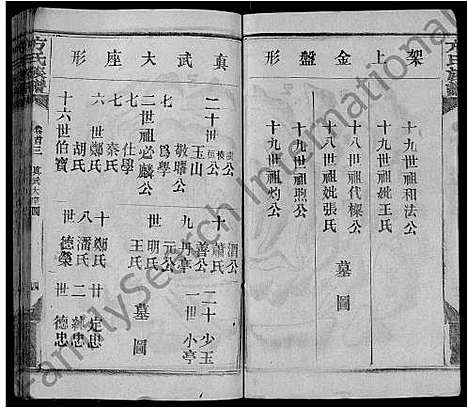 架上金盤形
十九世祖和法公
十九世祖妣王氏
十八世祖代樑公
十八世祖妣張氏
十九世祖煦公
十九世祖灼公
墓圖
真武大座形
二十世
玉山
敬睹公
七 爲學
二世祖必麟公
七 仕學
七 秦氏
世 鄭氏
胡氏
十六世伯寶
十 蕭氏
善公
九 丹亭
元公
世 明氏
王氏
十 鄭氏
八 潘氏
世 德榮
二十 少玉
一世 小亭
墓圖
廿 定忠
二
世 德忠
方氏族譜
卷首三
真武大座圖
四
FamilySearch International